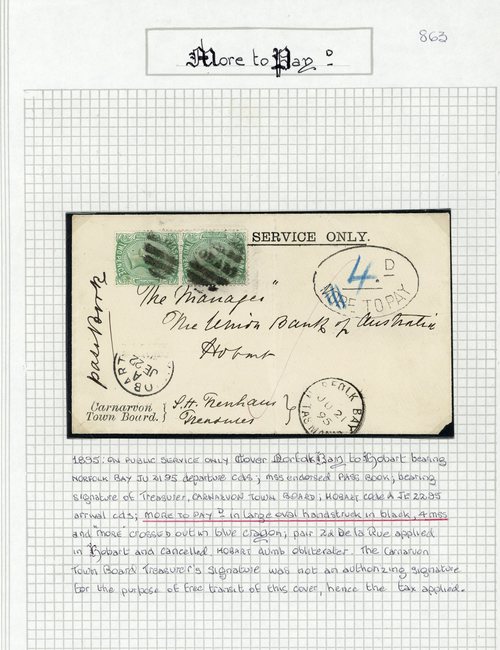 863
More to Pay :
SERVICE ONLY.
4 D
MORE TO PAY
TWOPENCE
pass Book
"The Manager"
The Union Bank of Australia
Hobart
HOBART
A
JE
22
Carnarvon
Town Board.
S.H. Wenham
Treasurer
NORFOLK BAY
JU 21
95
TASMANIA
1895: ON PUBLIC SERVICE ONLY Cover Norfolk Bay to Hobart bearing
NORFOLK BAY JU 21.95 departure cds; mss endorsed PASS BOOK; bearing
signature of Treasurer, CARNARVON TOWN BOARD; HOBART CODE A JE 22.95
arrival cds; MORE TO PAY D in large oval handstruck in black, 4 mss
and "more" crossed out in blue crayon; pair 2d De La Rue applied
in Hobart and cancelled, HOBART dumb obliterater. The Carnarvon
Town Board Treasurer's signature was not an authorizing signature
for the purpose of free transit of this cover, hence the tax applied.